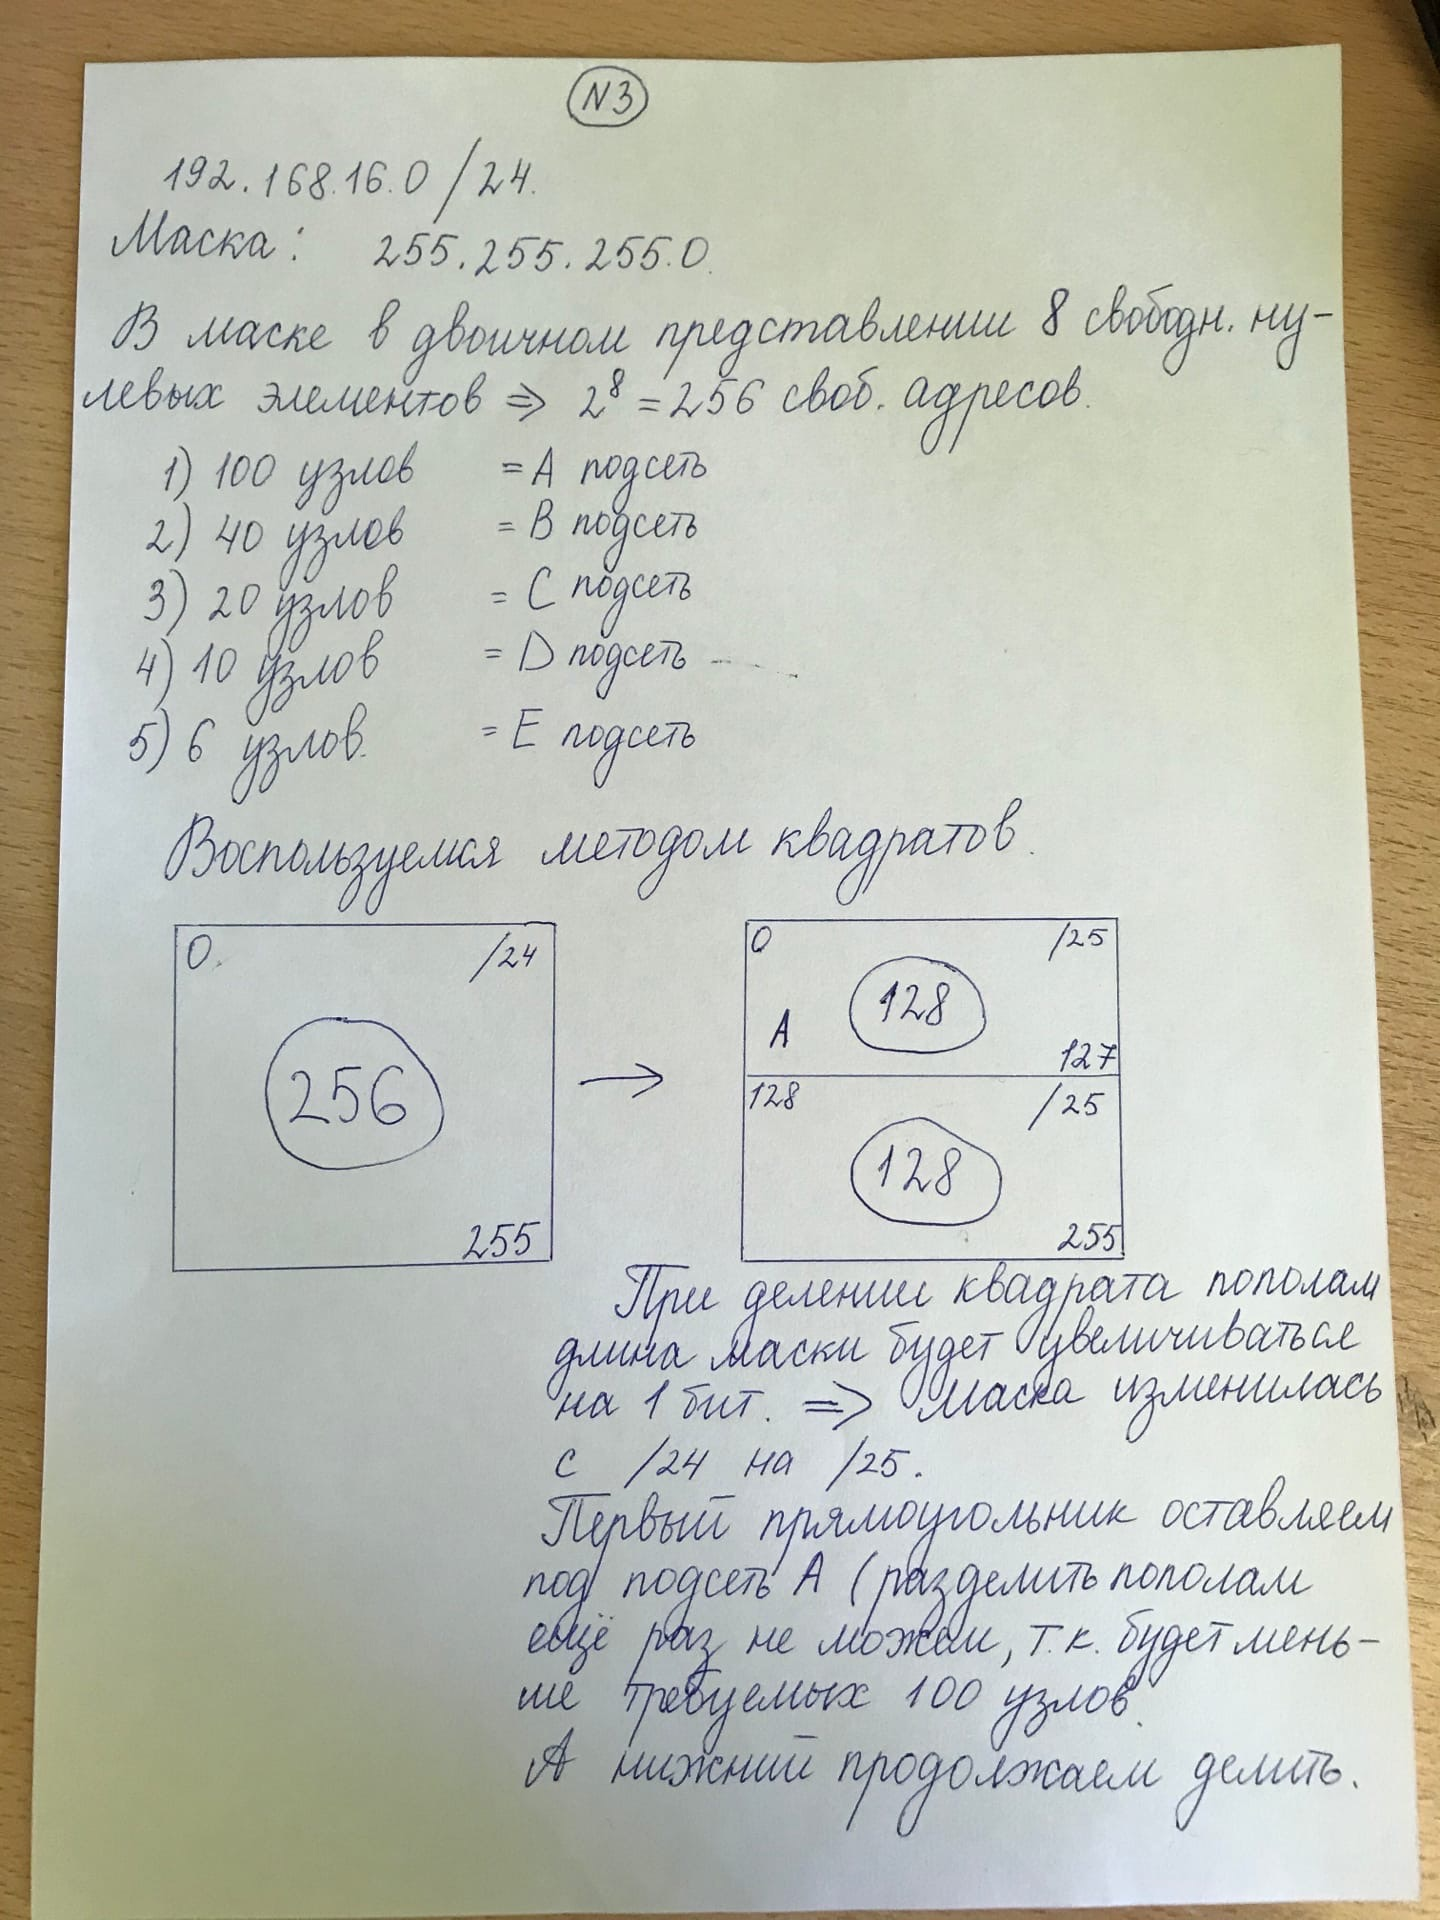 N3
192.168.16.0 /24.
Маска: 255.255.255.0.
В маске в двоичном представлении 8 свободн. ну-
левых элементов ⇒ 2⁸ = 256 своб. адресов.
1) 100 узлов = A подсеть
2) 40 узлов = B подсеть
3) 20 узлов = C подсеть
4) 10 узлов = D подсеть
5) 6 узлов. = E подсеть
Воспользуемся методом квадратов.
0. /24
256
255
→
0 /25
128
A
127
128 /25
128
255
При делении квадрата пополам
длина маски будет увеличиваться
на 1 бит. ⇒ маска изменилась
с /24 на /25.
Первый прямоугольник оставляем
под подсеть A (разделить пополам
ещё раз не можем, т.к. будет мень-
ше требуемых 100 узлов.
А нижний продолжаем делить.